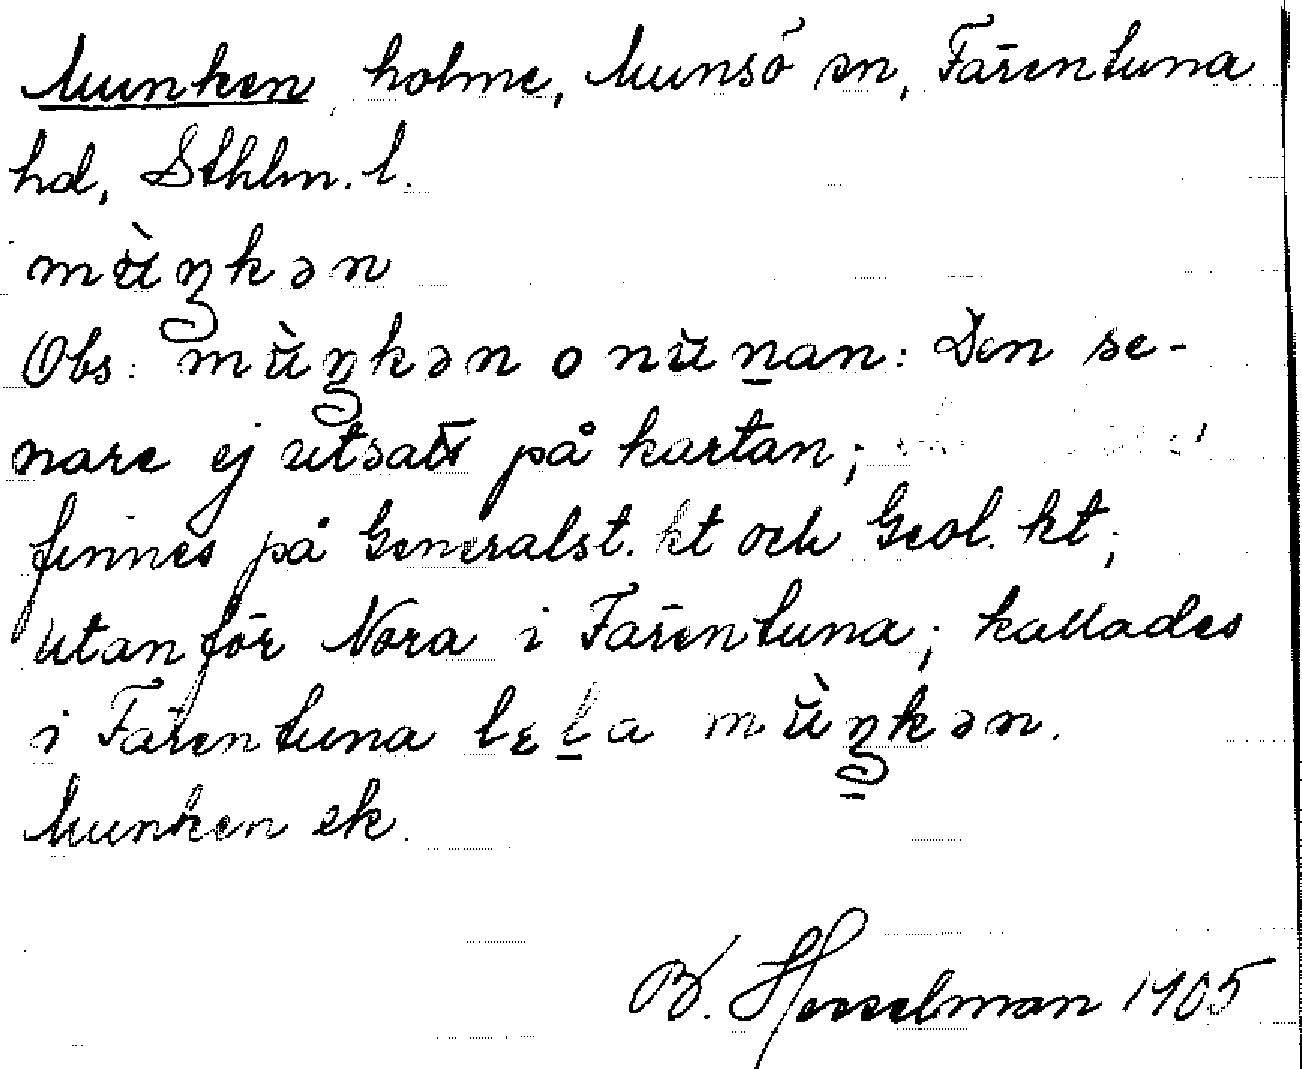 Munken, holme, Munsö sn, Färentuna
hd, Sthlm. l.
mùŋkən
Obs: mùŋkən o nùn̲an: Den se-
nare ej utsatt på kartan;
finnes på Generalst. kt och Geol. kt,
utanför Nora i Färentuna; kallades
i Färentuna lɛl̲a mùŋkən.
Munken ek.
B. Hesselman 1905